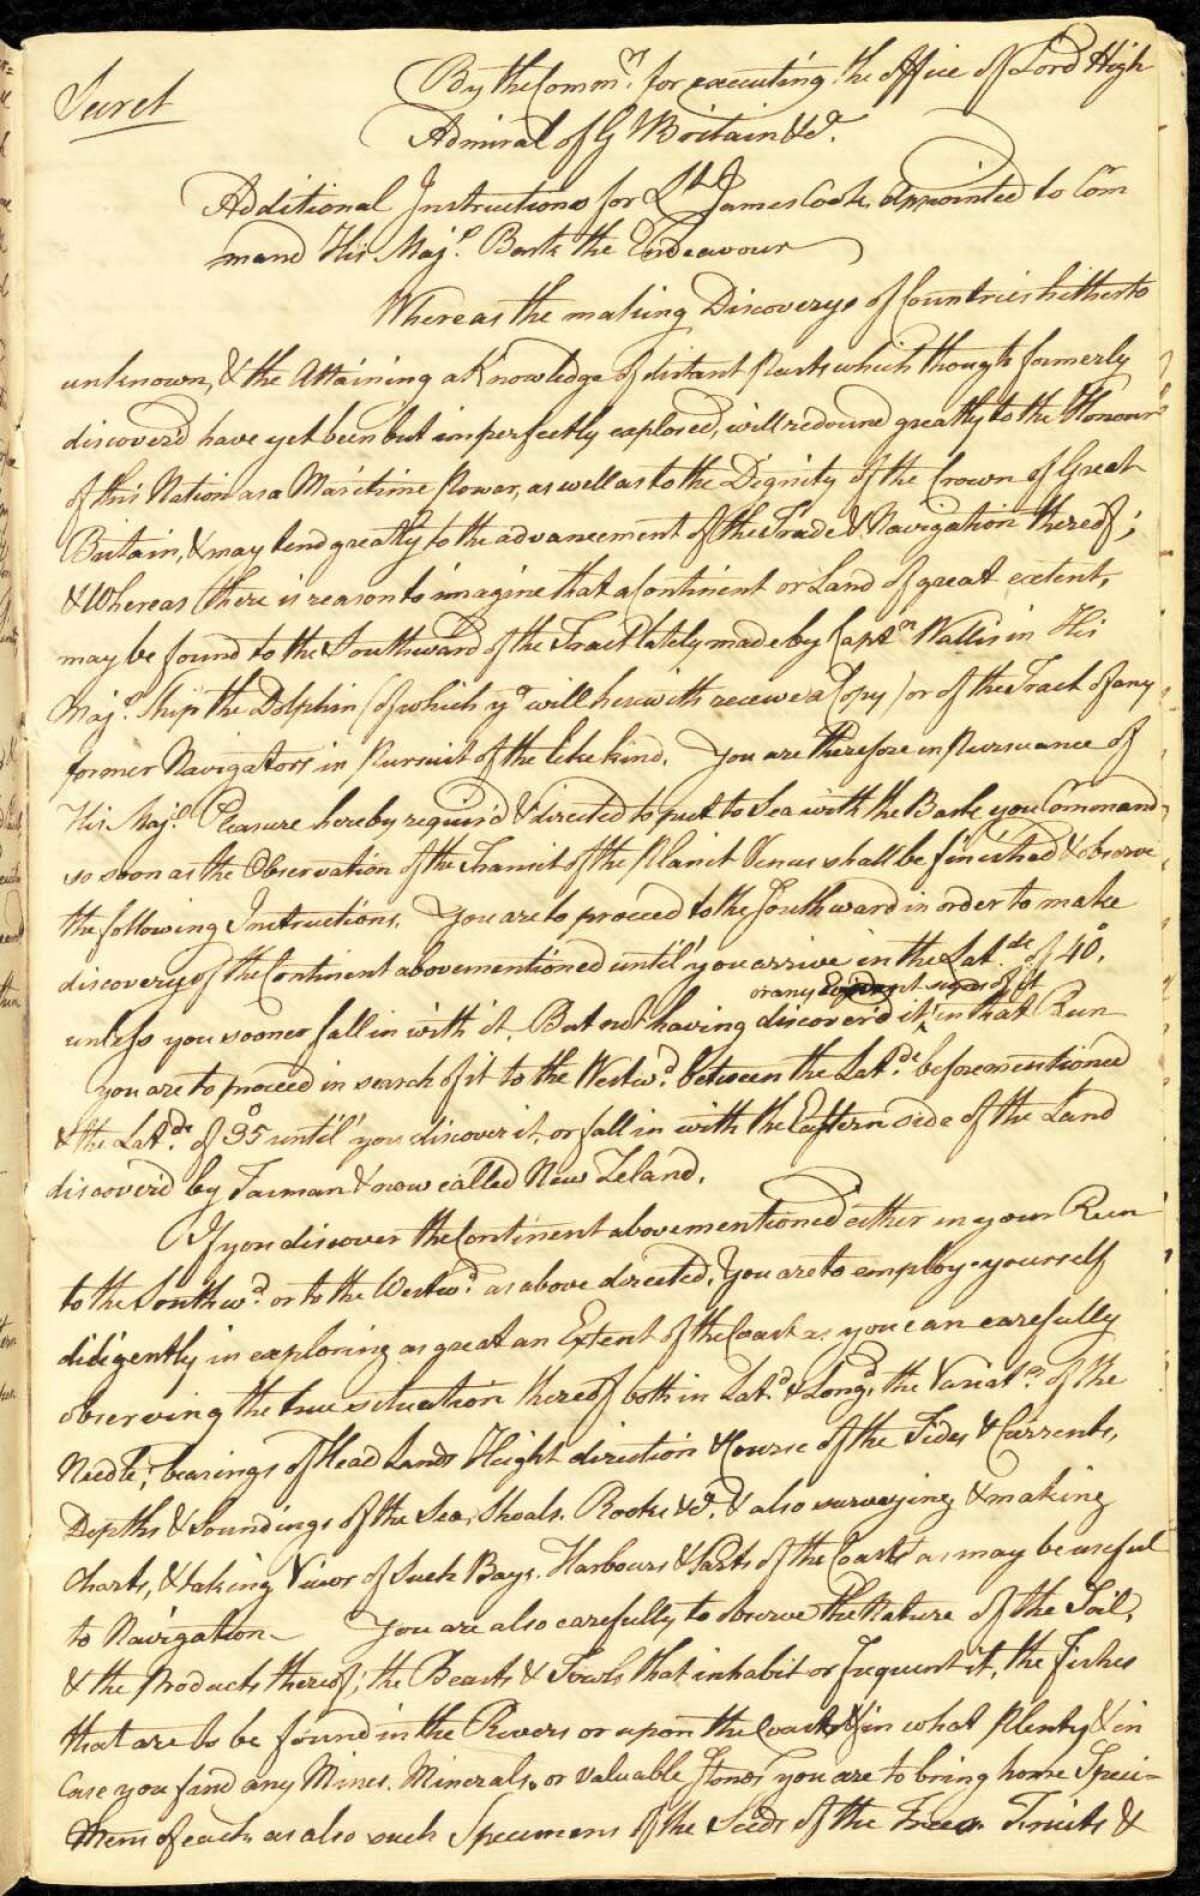 Secret
By the Commrs. for executing the Office of Lord High
Admiral of G Britain &ca.
Additional Instructions for Lt. James Cook, Appointed to Com
mand His Maj.s Bark the Endeavour
Whereas the making Discoverys of Countries hitherto
unknown, & the Attaining a Knowledge of distant Parts which though formerly
discover'd have yet been but imperfectly explored, will redound greatly to the Honour
of this Nation as a Maritime Power, as well as to the Dignity of the Crown of Great
Britain, & may tend greatly to the advancement of the Trade & Navigation thereof;
& Whereas there is reason to imagine that a Continent or Land of great extent,
may be found to the Southward of the Tract lately made by Captn. Wallis in His
Maj.s Ship the Dolphin (of which yo. will herewith receive a Copy) or of the Tract of any
former Navigators in Pursuit of the like kind. You are therefore in Pursuance of
His Maj.s Pleasure hereby requir'd & directed to put to Sea with the Bark you Command,
so soon as the Observation of the Transit of the Planet Venus shall be finished & observe
the following Instructions. You are to proceed to the Southward in order to make
discovery of the Continent abovementioned until you arrive in the Lat.de of 40°,
unless you sooner fall in with it. But not having discover'd it or any Evident signs of it in that Run
you are to proceed in search of it to the Westwd. between the Lat.de beforementioned
& the Lat.de of 35° until you discover it, or fall in with the Eastern side of the Land
discover'd by Tasman & now called New Zeland.
If you discover the Continent abovementioned either in your Run
to the Southwd. or to the Westwd. as above directed, You are to employ yourself
diligently in exploring as great an Extent of the Coast as you can carefully
observing the true situation thereof both in Latd. & Longd. the Variatn. of the
Needle; bearings of Head Lands Height direction & Course of the Tides & Currents,
Depths & Soundings of the Sea, Shoals, Rocks &ca. & also surveying & making
Charts, & taking Views of Such Bays, Harbours & Parts of the Coasts as may be useful
to Navigation. You are also carefully to observe the Nature of the Soil,
& the Products thereof; the Beasts & Fowls that inhabit or frequent it, the Fishes
that are to be found in the Rivers or upon the Coast & in what Plenty & in
Case you find any Mines, Minerals, or valuable Stones you are to bring home Speci-
mens of each, as also such Specimens of the Seeds of the Trees Fruits &